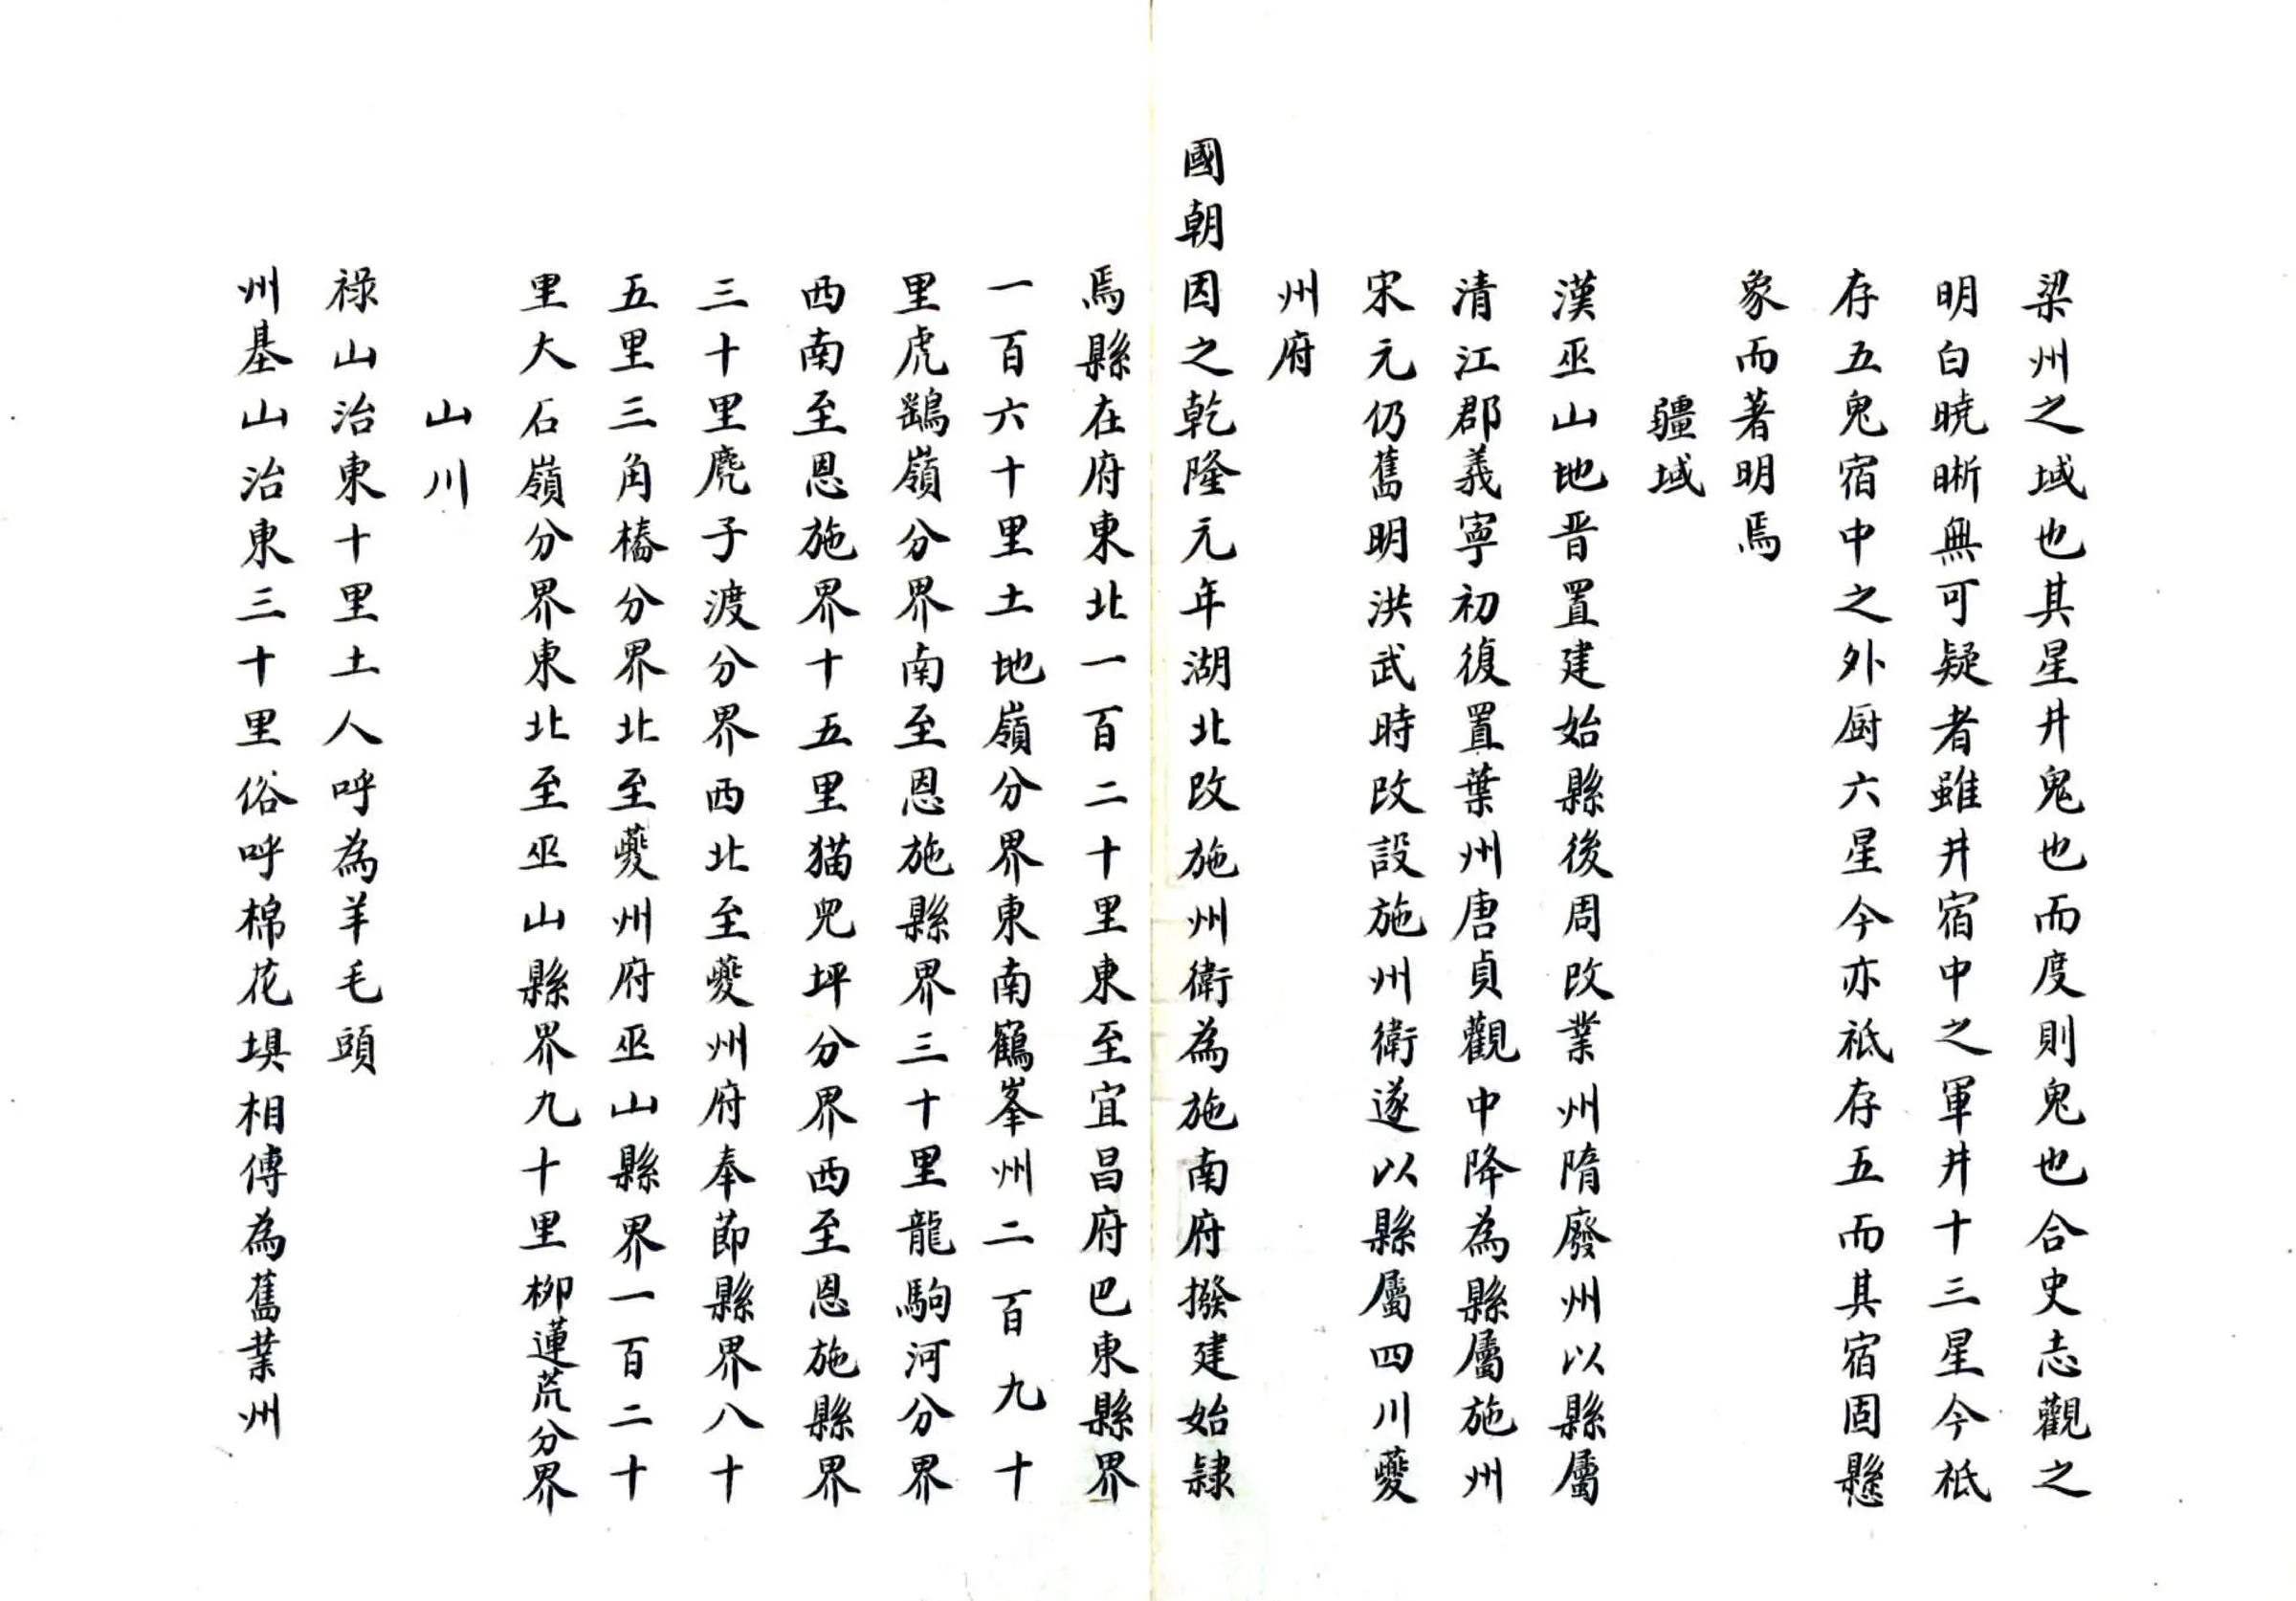 梁州之域也其星井鬼也而度則鬼也合史志觀之
明白曉晰無可疑者雖井宿中之軍井十三星今祗
存五鬼宿中之外厨六星今亦祗存五而其宿固懸
象而著明焉
疆域
漢巫山地晋置建始縣後周改業州隋廢州以縣屬
清江郡義寧初復置葉州唐貞觀中降為縣屬施州
宋元仍舊明洪武時改設施州衛遂以縣屬四川夔
州府
國朝因之乾隆元年湖北改施州衛為施南府撥建始隸
焉縣在府東北一百二十里東至宜昌府巴東縣界
一百六十里土地嶺分界東南鶴峯州二百九十
里虎鷂嶺分界南至恩施縣界三十里龍駒河分界
西南至恩施界十五里猫兒坪分界西至恩施縣界
三十里麂子渡分界西北至夔州府奉節縣界八十
五里三角樁分界北至夔州府巫山縣界一百二十
里大石嶺分界東北至巫山縣界九十里柳蓮荒分界
山川
祿山治東十里土人呼為羊毛頭
州基山治東三十里俗呼棉花埧相傳為舊業州